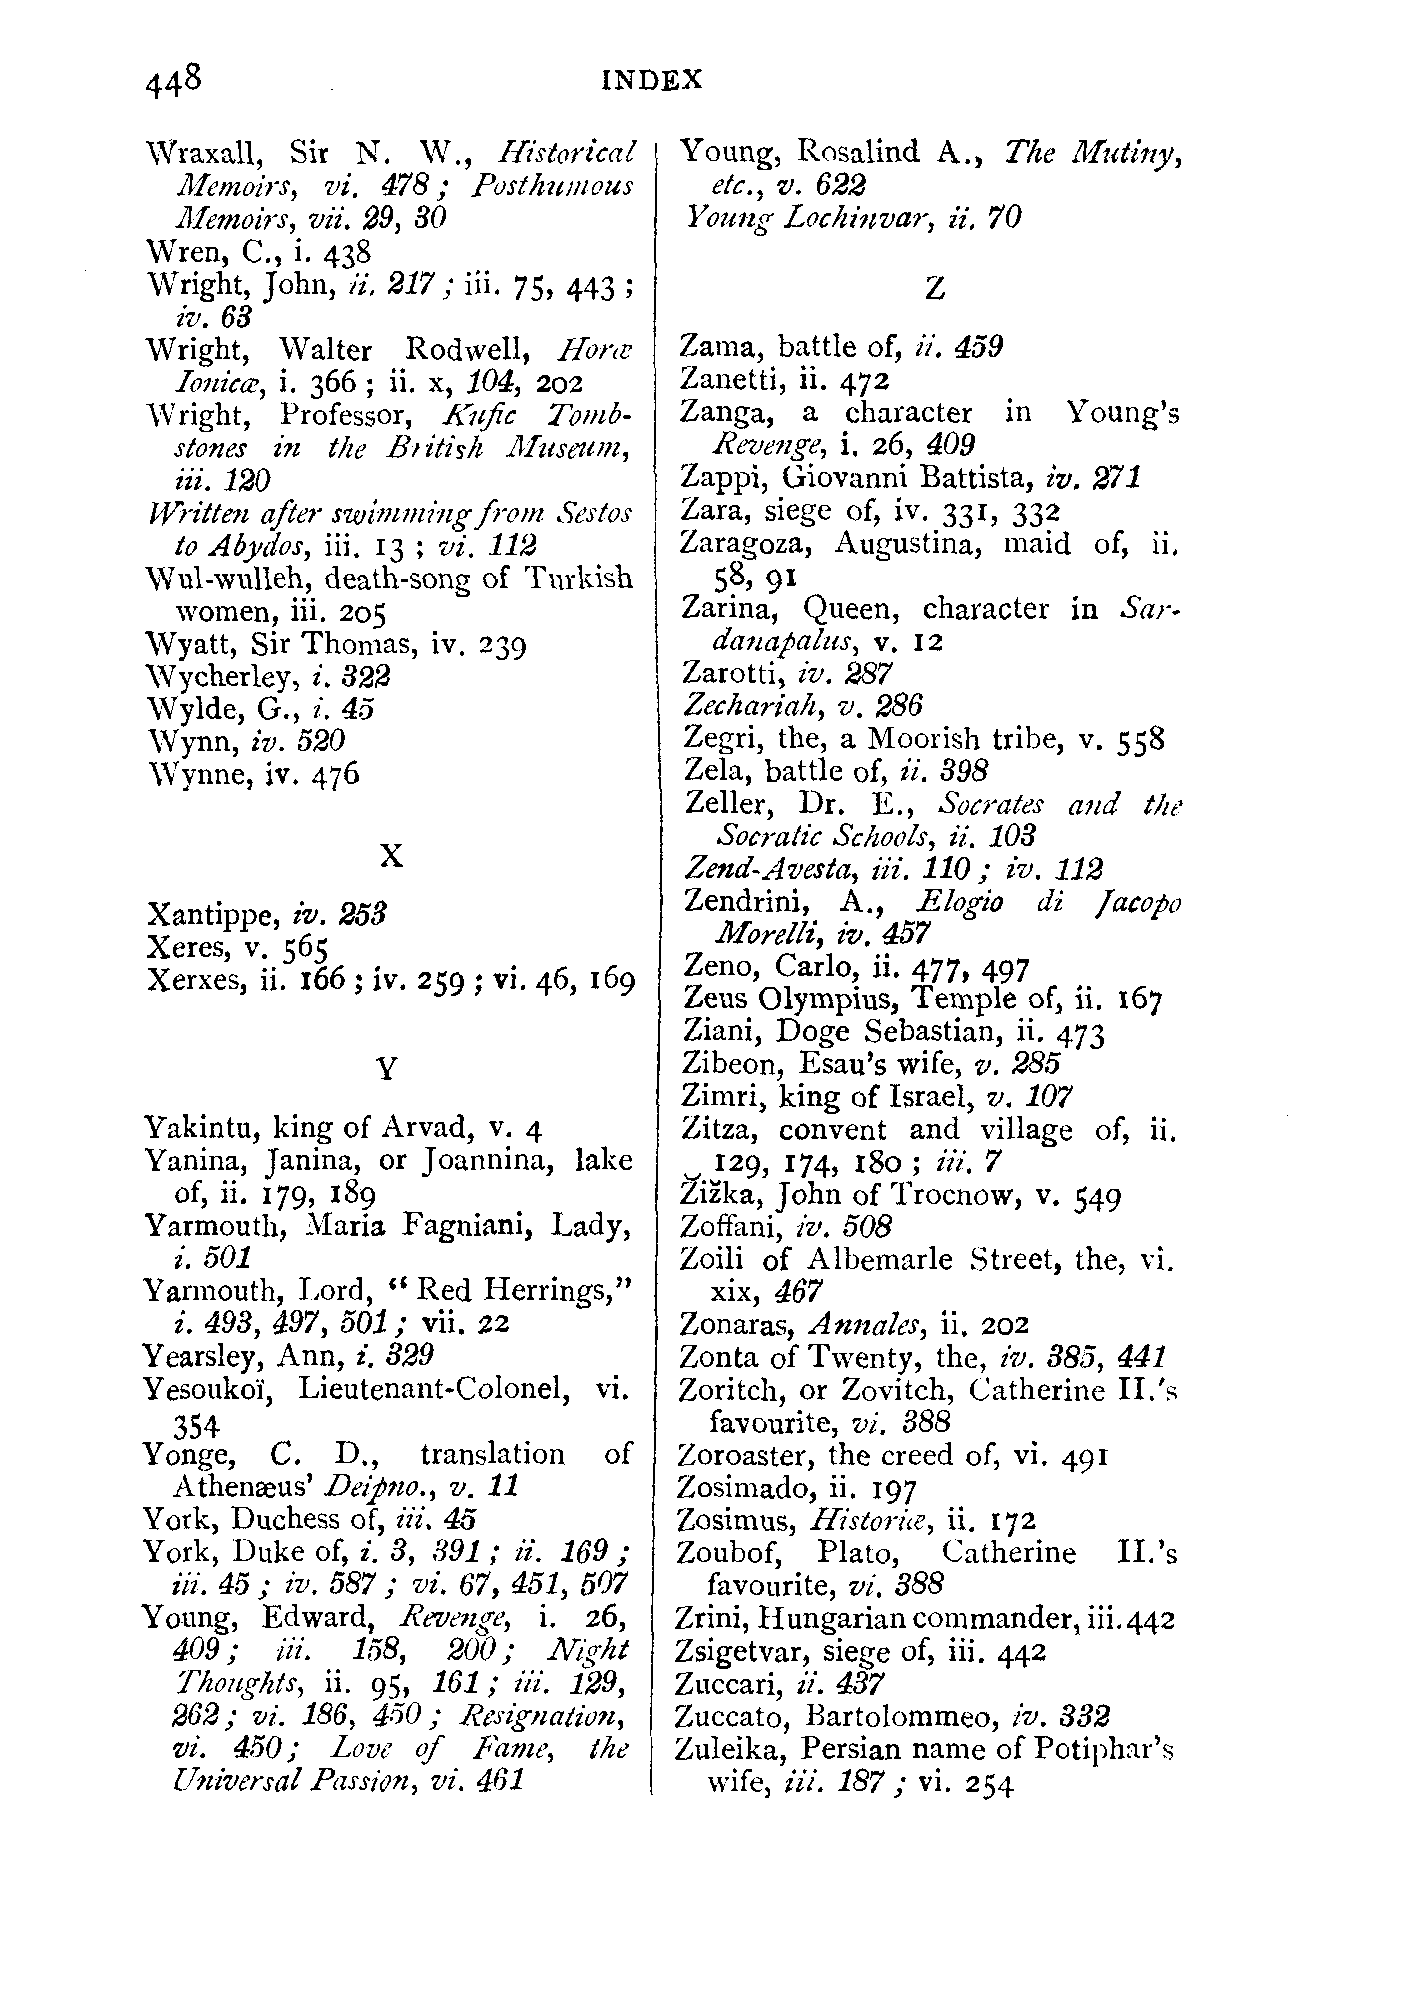 448
INDEX
Wraxall, Sir N. W., Historical
Memoirs, vi. 478 ; Posthumous
Memoirs, vii. 29, 30
Wren, C., i. 438
Wright, John, ii. 217 ; iii. 75, 443 ;
iv. 63
Wright, Walter Rodwell, Horæ
Ionicæ, i. 366 ; ii. x, 104, 202
Wright, Professor, Kufic Tomb-
stones in the British Museum,
iii. 120
Written after swimming from Sestos
to Abydos, iii. 13 ; vi. 112
Wul-wulleh, death-song of Turkish
women, iii. 205
Wyatt, Sir Thomas, iv. 239
Wycherley, i. 322
Wylde, G., i. 45
Wynn, iv. 520
Wynne, iv. 476
X
Xantippe, iv. 253
Xeres, v. 565
Xerxes, ii. 166 ; iv. 259 ; vi. 46, 169
Y
Yakintu, king of Arvad, v. 4
Yanina, Janina, or Joannina, lake
of, ii. 179, 189
Yarmouth, Maria Fagniani, Lady,
i. 501
Yarmouth, Lord, “ Red Herrings,”
i. 493, 497, 501 ; vii. 22
Yearsley, Ann, i. 329
Yesoukoï, Lieutenant-Colonel, vi.
354
Yonge, C. D., translation of
Athenæus’ Deipno., v. 11
York, Duchess of, iii. 45
York, Duke of, i. 3, 391 ; ii. 169 ;
iii. 45 ; iv. 587 ; vi. 67, 451, 507
Young, Edward, Revenge, i. 26,
409 ; iii. 158, 200 ; Night
Thoughts, ii. 95, 161 ; iii. 129,
262 ; vi. 186, 450 ; Resignation,
vi. 450 ; Love of Fame, the
Universal Passion, vi. 461
Young, Rosalind A., The Mutiny,
etc., v. 622
Young Lochinvar, ii. 70
Z
Zama, battle of, ii. 459
Zanetti, ii. 472
Zanga, a character in Young’s
Revenge, i. 26, 409
Zappi, Giovanni Battista, iv. 271
Zara, siege of, iv. 331, 332
Zaragoza, Augustina, maid of, ii.
58, 91
Zarina, Queen, character in Sar-
danapalus, v. 12
Zarotti, iv. 287
Zechariah, v. 286
Zegri, the, a Moorish tribe, v. 558
Zela, battle of, ii. 398
Zeller, Dr. E., Socrates and the
Socratic Schools, ii. 103
Zend-Avesta, iii. 110 ; iv. 112
Zendrini, A., Elogio di Jacopo
Morelli, iv. 457
Zeno, Carlo, ii. 477, 497
Zeus Olympius, Temple of, ii. 167
Ziani, Doge Sebastian, ii. 473
Zibeon, Esau’s wife, v. 285
Zimri, king of Israel, v. 107
Zitza, convent and village of, ii.
129, 174, 180 ; iii. 7
Z̆iz̆ka, John of Trocnow, v. 549
Zoffani, iv. 508
Zoili of Albemarle Street, the, vi.
xix, 467
Zonaras, Annales, ii. 202
Zonta of Twenty, the, iv. 385, 441
Zoritch, or Zovitch, Catherine II.’s
favourite, vi. 388
Zoroaster, the creed of, vi. 491
Zosimado, ii. 197
Zosimus, Historiæ, ii. 172
Zoubof, Plato, Catherine II.’s
favourite, vi. 388
Zrini, Hungarian commander, iii. 442
Zsigetvar, siege of, iii. 442
Zuccari, ii. 437
Zuccato, Bartolommeo, iv. 332
Zuleika, Persian name of Potiphar’s
wife, iii. 187 ; vi. 254